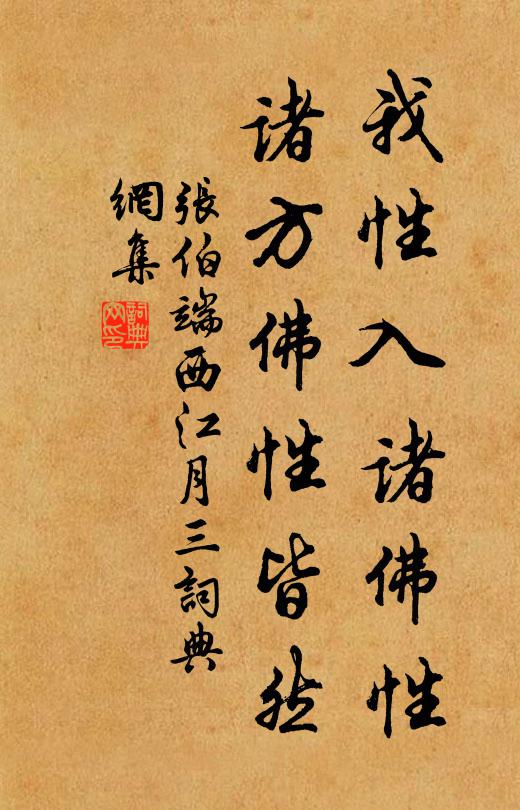 我性入诸佛性
诸方佛性皆然
張伯端西江月三詞典
網集
詞典
网印